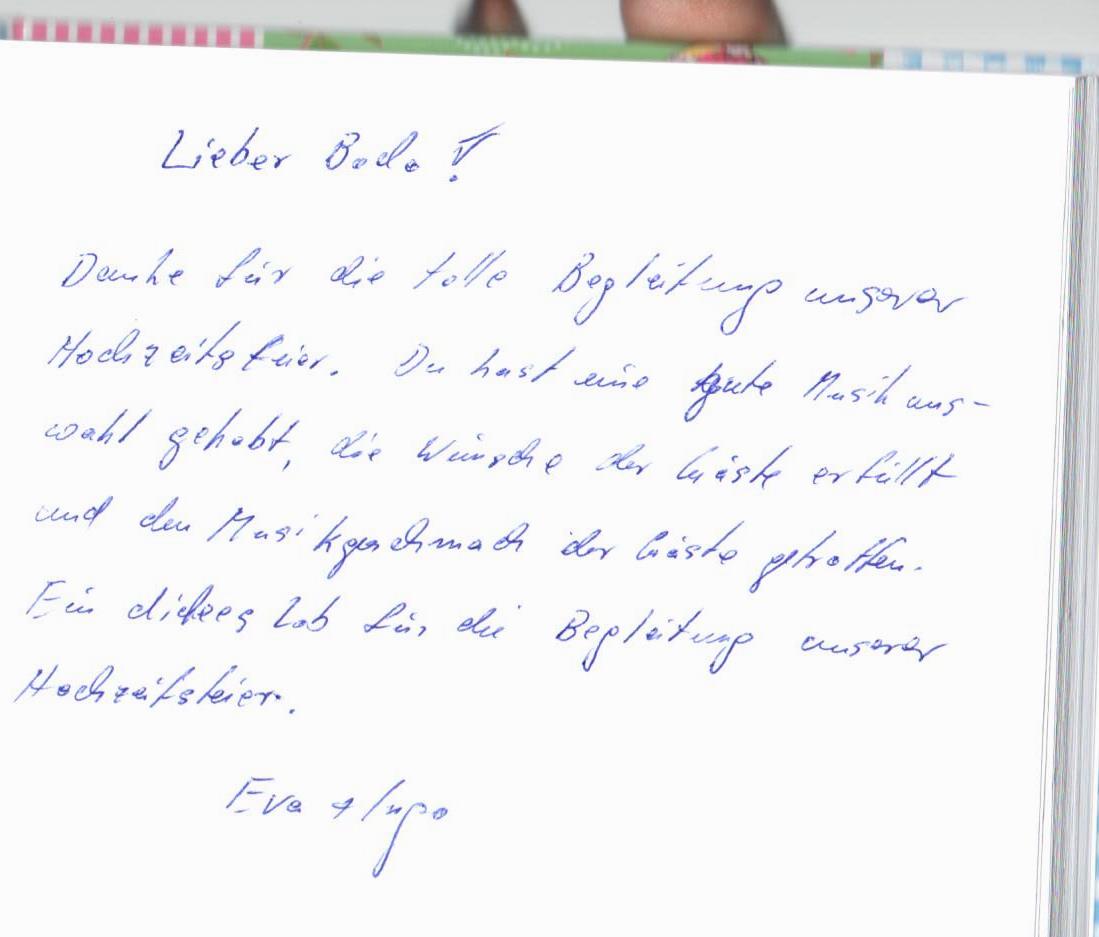 Lieber Bodo!
Danke für die tolle Begleitung unserer
Hochzeitsfeier. Du hast eine gute Musikaus-
wahl gehabt, die Wünsche der Gäste erfüllt
und den Musikgeschmack der Gäste getroffen.
Ein dickes Lob für die Begleitung unserer
Hochzeitsfeier.
Eva + Ingo